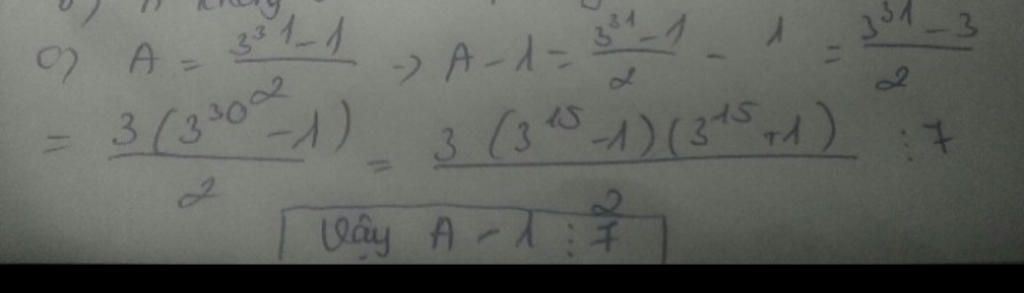 c) A = \frac{3^{31}-1}{2} → A - 1 = \frac{3^{31}-1}{2} - 1 = \frac{3^{31}-3}{2}
= \frac{3(3^{30}-1)}{2} = \frac{3(3^{15}-1)(3^{15}+1)}{2} ⋮ 7
Vậy A - 1 ⋮ 7